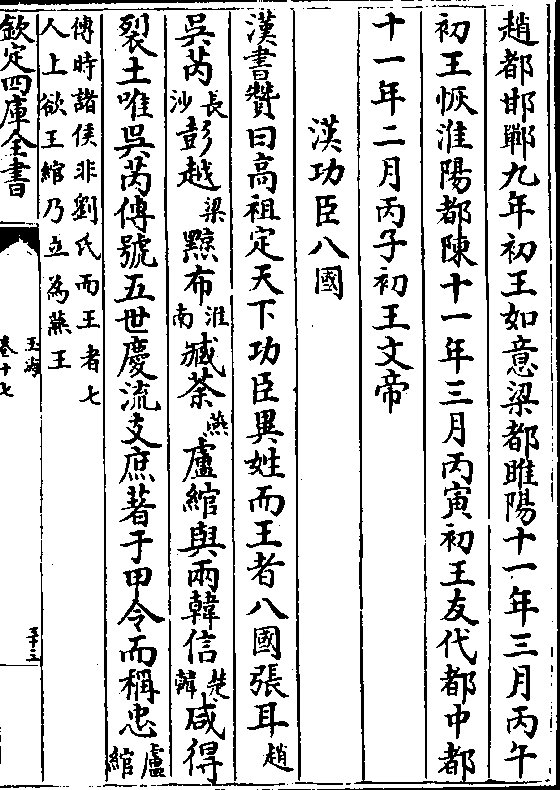 趙都邯鄲九年初王如意梁都睢陽十一年三月丙午
初王恢淮陽都陳十一年三月丙寅初王友代都中都
十一年二月丙子初王文帝
漢功臣八國
漢書贊曰高祖定天下功臣異姓而王者八國張耳趙
吳芮長沙彭越梁黥布淮南臧荼燕盧綰與兩韓信楚韓咸得
裂土唯吳芮傳號五世慶流支庶著于甲令而稱忠盧綰
傳時諸侯非劉氏而王者七
人上欲王綰乃立為燕王
欽定四庫全書
玉海
卷十七